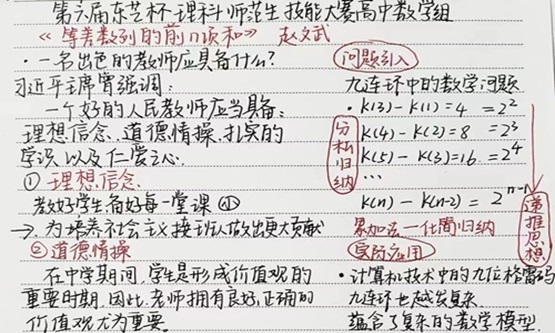 第六届东芝杯·理科师范生技能大赛高中数学组
《等差数列的前n项和》 赵文武
·一名出色的教师应具备什么?
习近平主席曾强调:
一个好的人民教师应当具备:
理想信念、道德情操、扎实的
学识以及仁爱之心.
① 理想信念
教好学生,备好每一堂课
→为培养社会主义接班人做出更大贡献
② 道德情操
在中学期间,学生是形成价值观的
重要时期.因此,老师拥有良好,正确的
价值观尤为重要.
问题引入
九连环中的数学问题
·k(3)-k(1)=4 =2²
k(4)-k(2)=8 =2³
k(5)-k(3)=16 =2⁴
...
k(n)-k(n-2)=2ⁿ⁻¹
分析归纳
递推思想
累加法—化简归纳
实际应用
·计算机技术中的九位格雷码
九连环也越发复杂
蕴含了复杂的数学模型